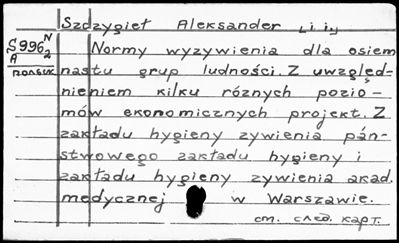 Szczygieł Aleksander Li. i.
S996 N2 Normy wyzywienia dla osiem
A
польск nastu grup ludności. Z uwzględ-
nieniem kilku różnych pozio-
mów ekonomicznych projekt. Z
zakładu hygieny zywienia pań-
stwowego zakładu hygieny i
zakładu hygieny zywienia akad.
medycznej w Warszawie.
ст. след. карт.